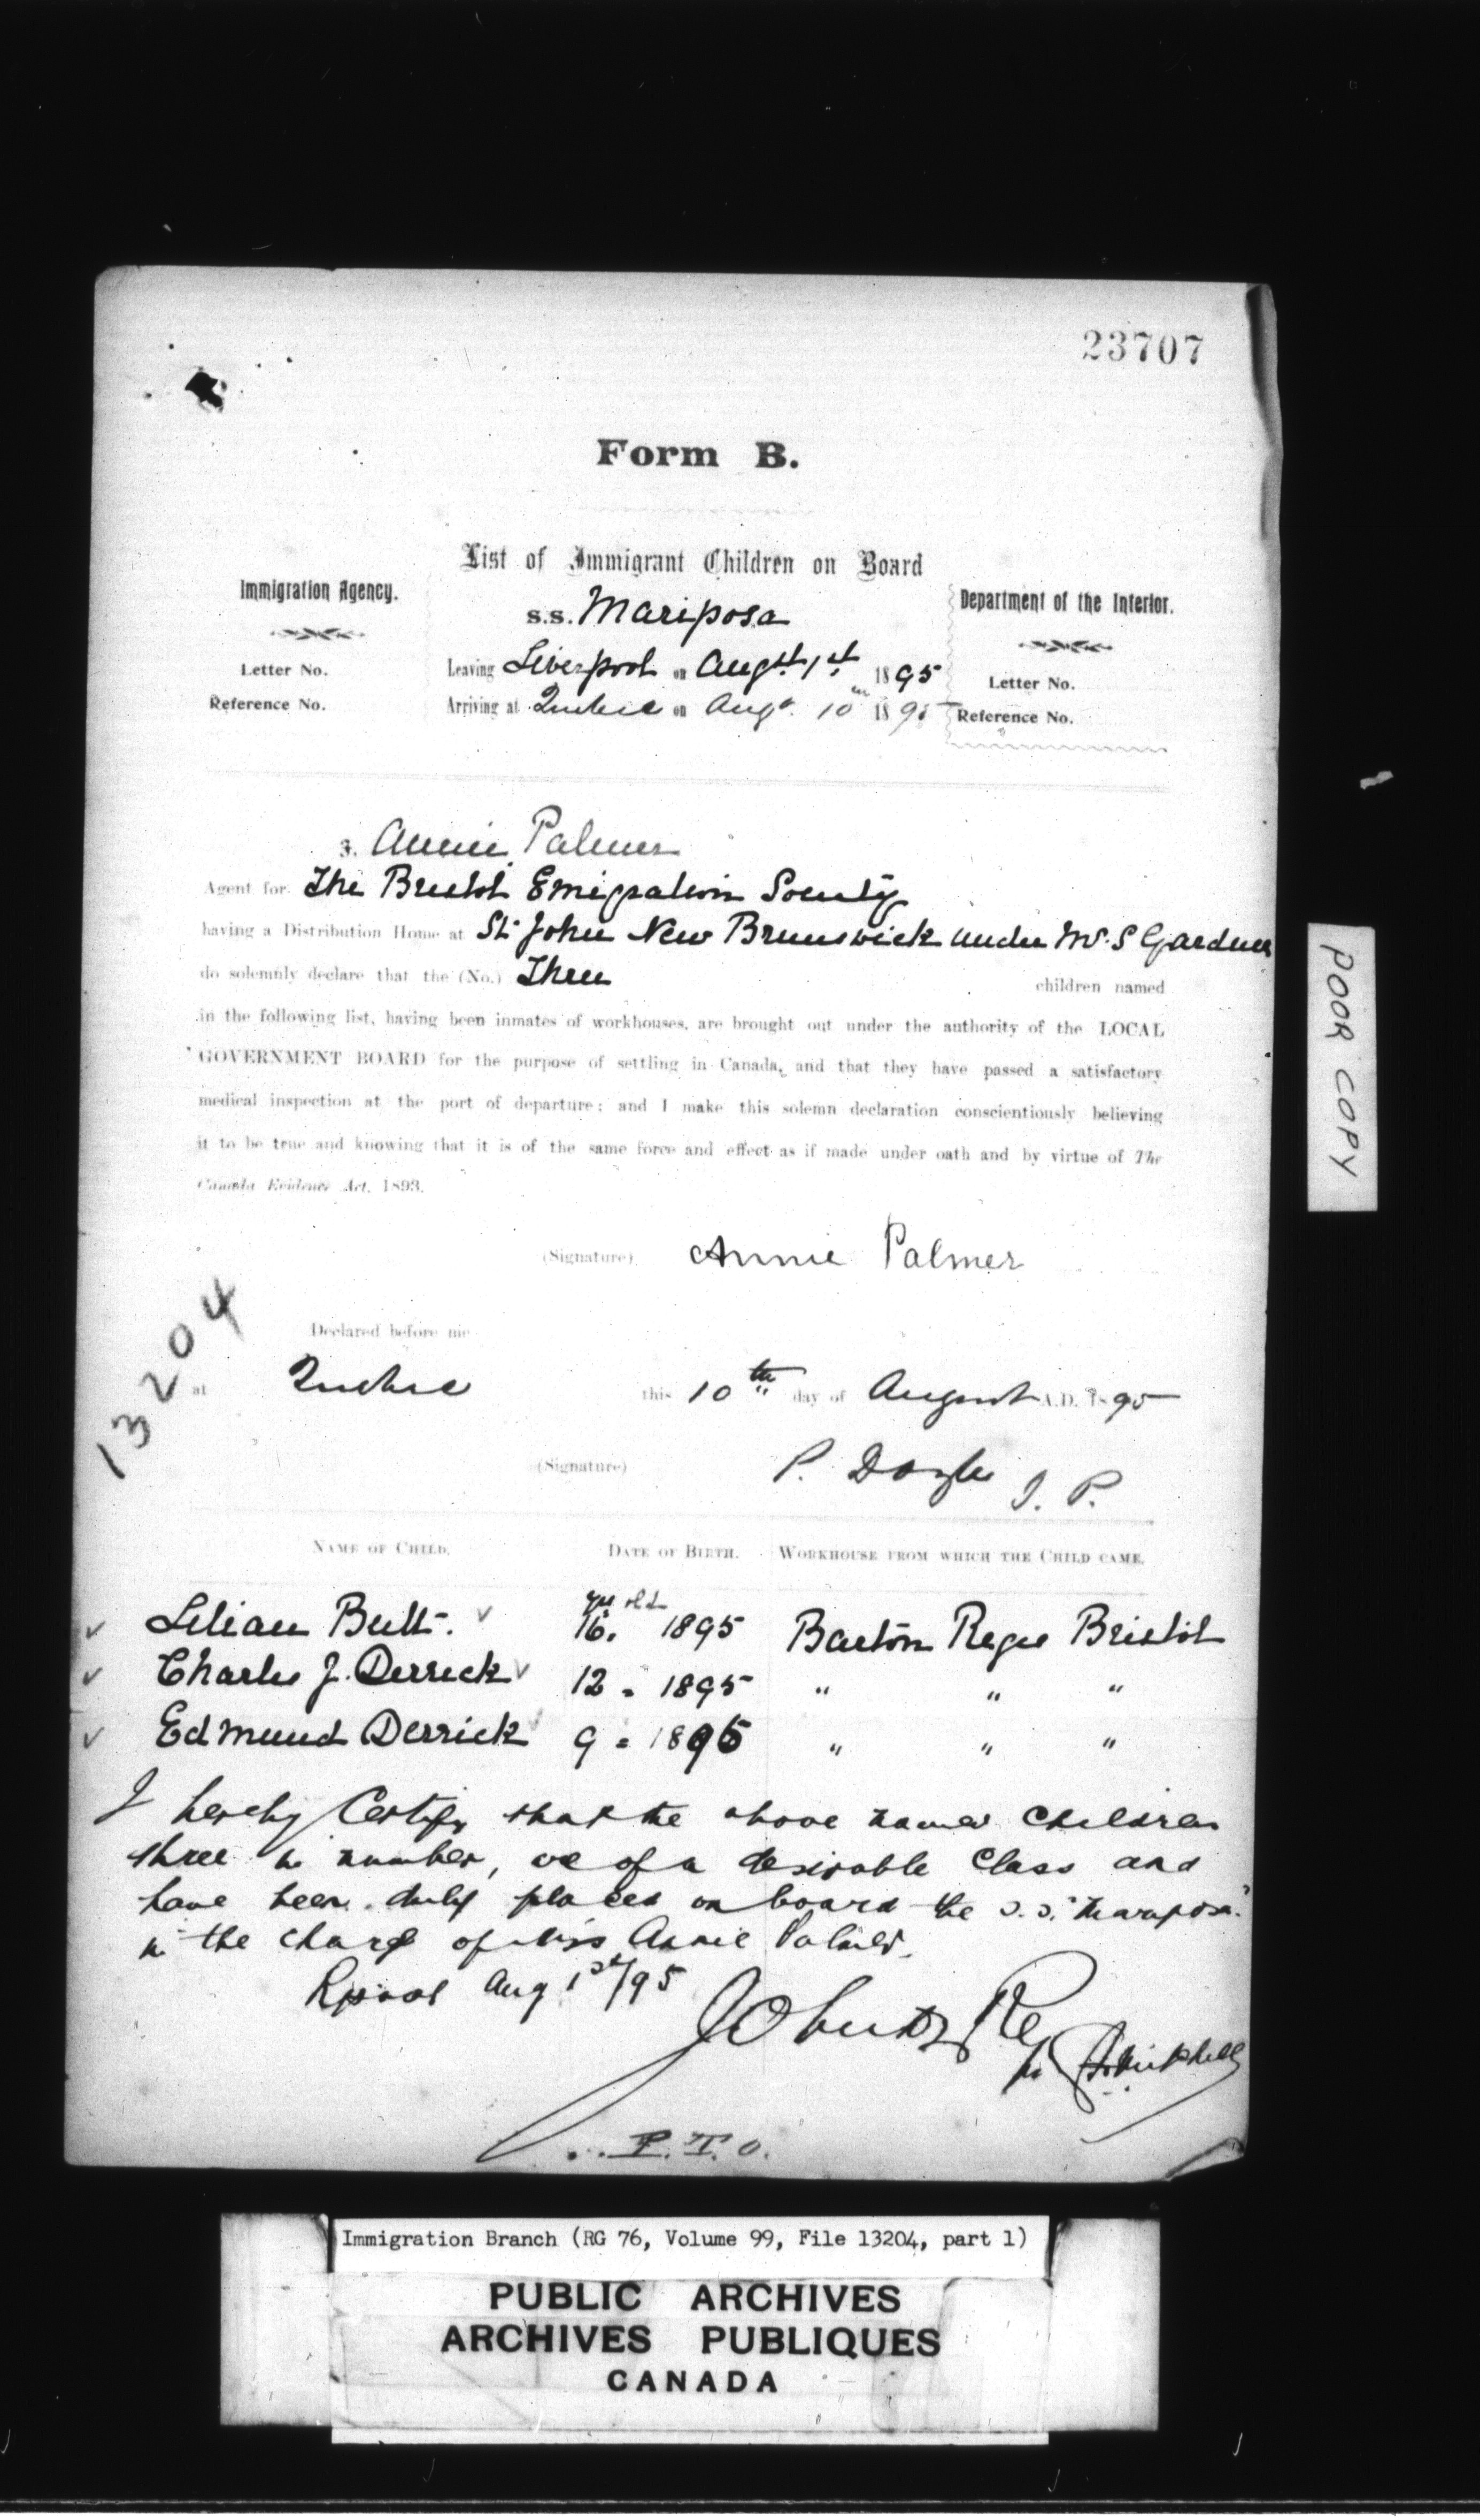 23707
Form B.
List of Immigrant Children on Board
Immigration Agency.
s.s. Mariposa
Department of the Interior.
Letter No.
Leaving Liverpool on Augst 1st 1895
Letter No.
Reference No.
Arriving at Quebec on Augt. 10th 1895
Reference No.
I, Annie Palmer
Agent for The Bristol Emigration Society
having a Distribution Home at St. John New Brunswick under Mr. S Gardner
do solemnly declare that the (No.) Three children named
in the following list, having been inmates of workhouses, are brought out under the authority of the LOCAL
GOVERNMENT BOARD for the purpose of settling in Canada, and that they have passed a satisfactory
medical inspection at the port of departure; and I make this solemn declaration conscientiously believing
it to be true and knowing that it is of the same force and effect as if made under oath and by virtue of The
Canada Evidence Act, 1893.
(Signature) Annie Palmer
13204
Declared before me
at Quebec this 10th day of August A.D. 1895
(Signature) P. Doyle J. P.
NAME OF CHILD. DATE OF BIRTH. WORKHOUSE FROM WHICH THE CHILD CAME.
Lilian Butt. yrs old 16. 1895 Barton Regis Bristol
Charles J. Derrick 12 " 1895 " " "
Edmund Derrick 9 " 1895 " " "
I hereby Certify that the above named children
three in number, are of a desirable class and
have been duly placed on board the S.S. "Mariposa"
in the charge of Miss Annie Palmer.
Lpool Aug 1st/95
John
P.T.O.
POOR COPY
Immigration Branch (RG 76, Volume 99, File 13204, part 1)
PUBLIC ARCHIVES
ARCHIVES PUBLIQUES
CANADA